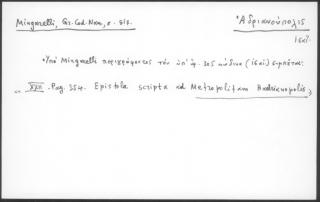 Mingarelli, Gr. Cod. Nan., σ. 517.
Ἀδριανούπολις
Ὑπὸ Mingarelli περιγράφοντος τὸν ὑπ' ἀρ. 305 κώδικα
"XXII. Pag. 354. Epistola scripta ad Metropolitam Hadrianopolis"